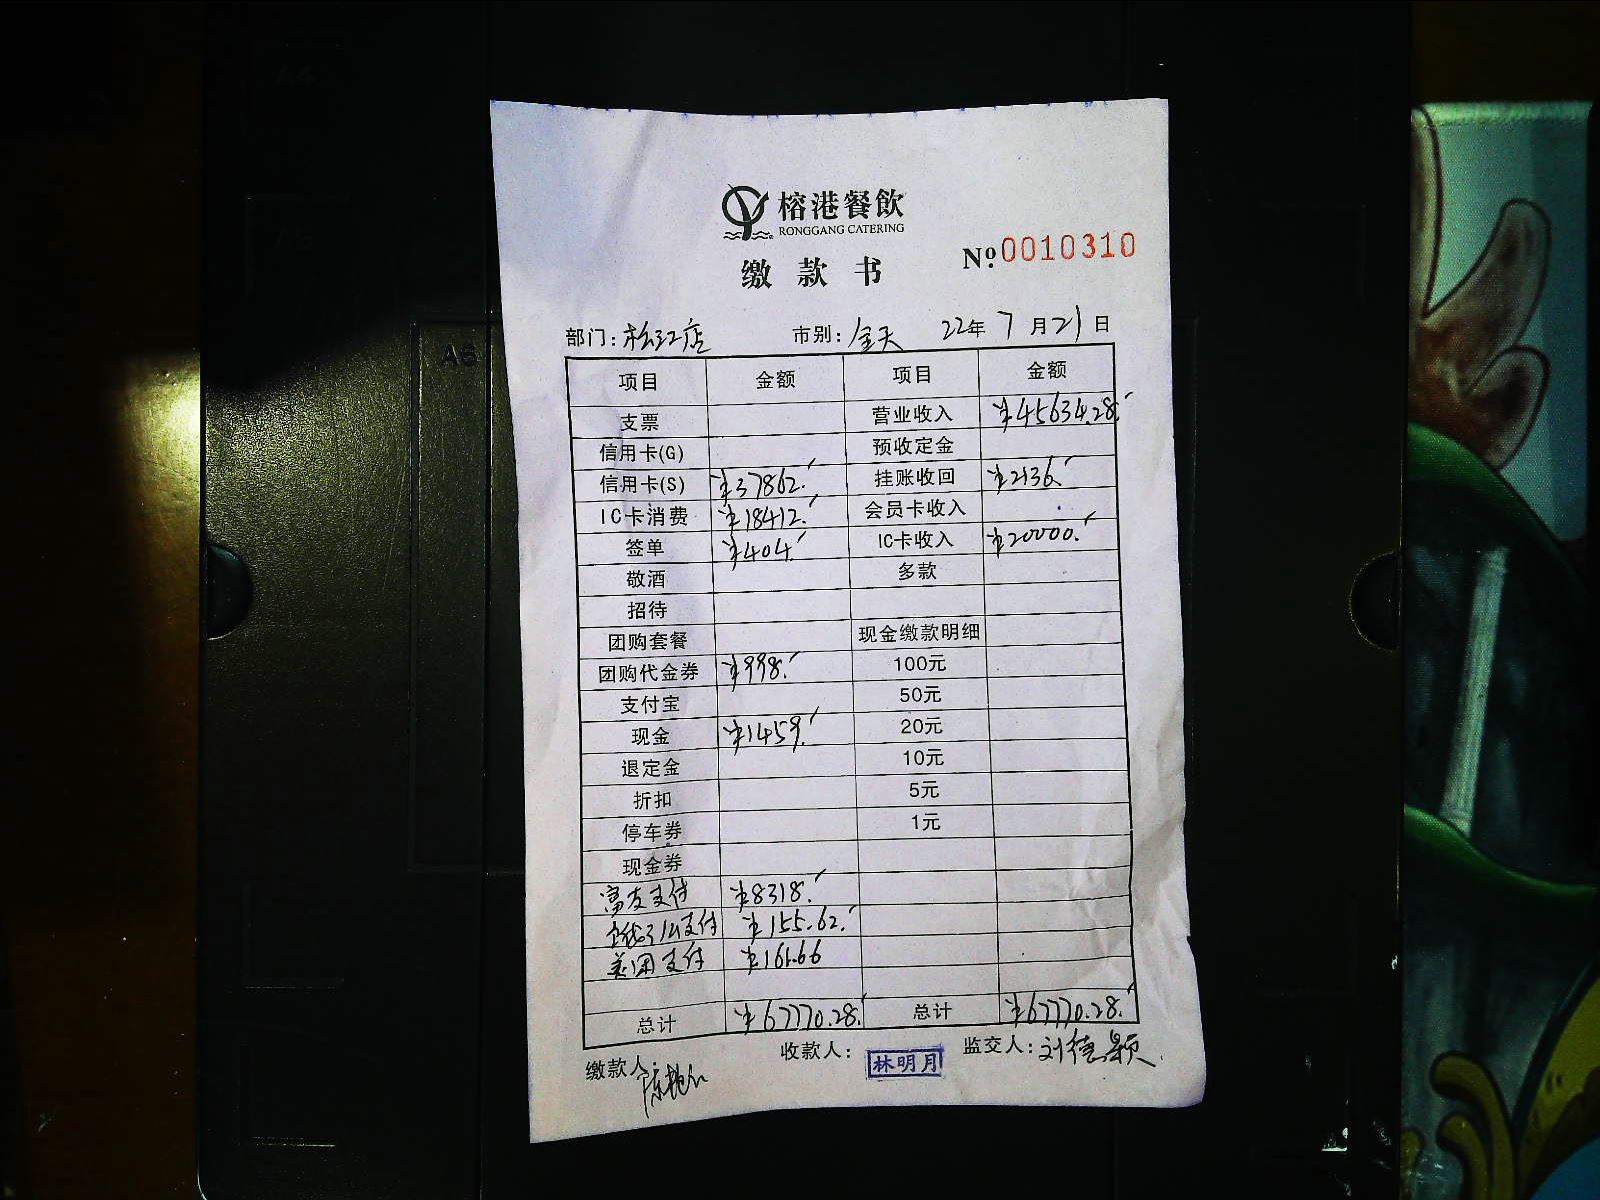 榕港餐飲
RONGGANG CATERING
缴款书
Nº 0010310
部门: 松江店 市别: 全天 22年 7月21日
项目 金额 项目 金额
支票 营业收入 ¥45634.28
信用卡(G) 预收定金
信用卡(S) ¥37862. 挂账收回 ¥2136.
IC卡消费 ¥18412. 会员卡收入
签单 ¥404. IC卡收入 ¥20000.
敬酒 多款
招待
团购套餐 现金缴款明细
团购代金券 ¥998. 100元
支付宝 50元
现金 ¥1459. 20元
退定金 10元
折扣 5元
停车券 1元
现金券
富友支付 ¥8318.
支付 ¥155.62.
美团支付 ¥161.66
总计 ¥67770.28. 总计 ¥67770.28.
缴款人 收款人: 林明月 监交人: 刘德
A6